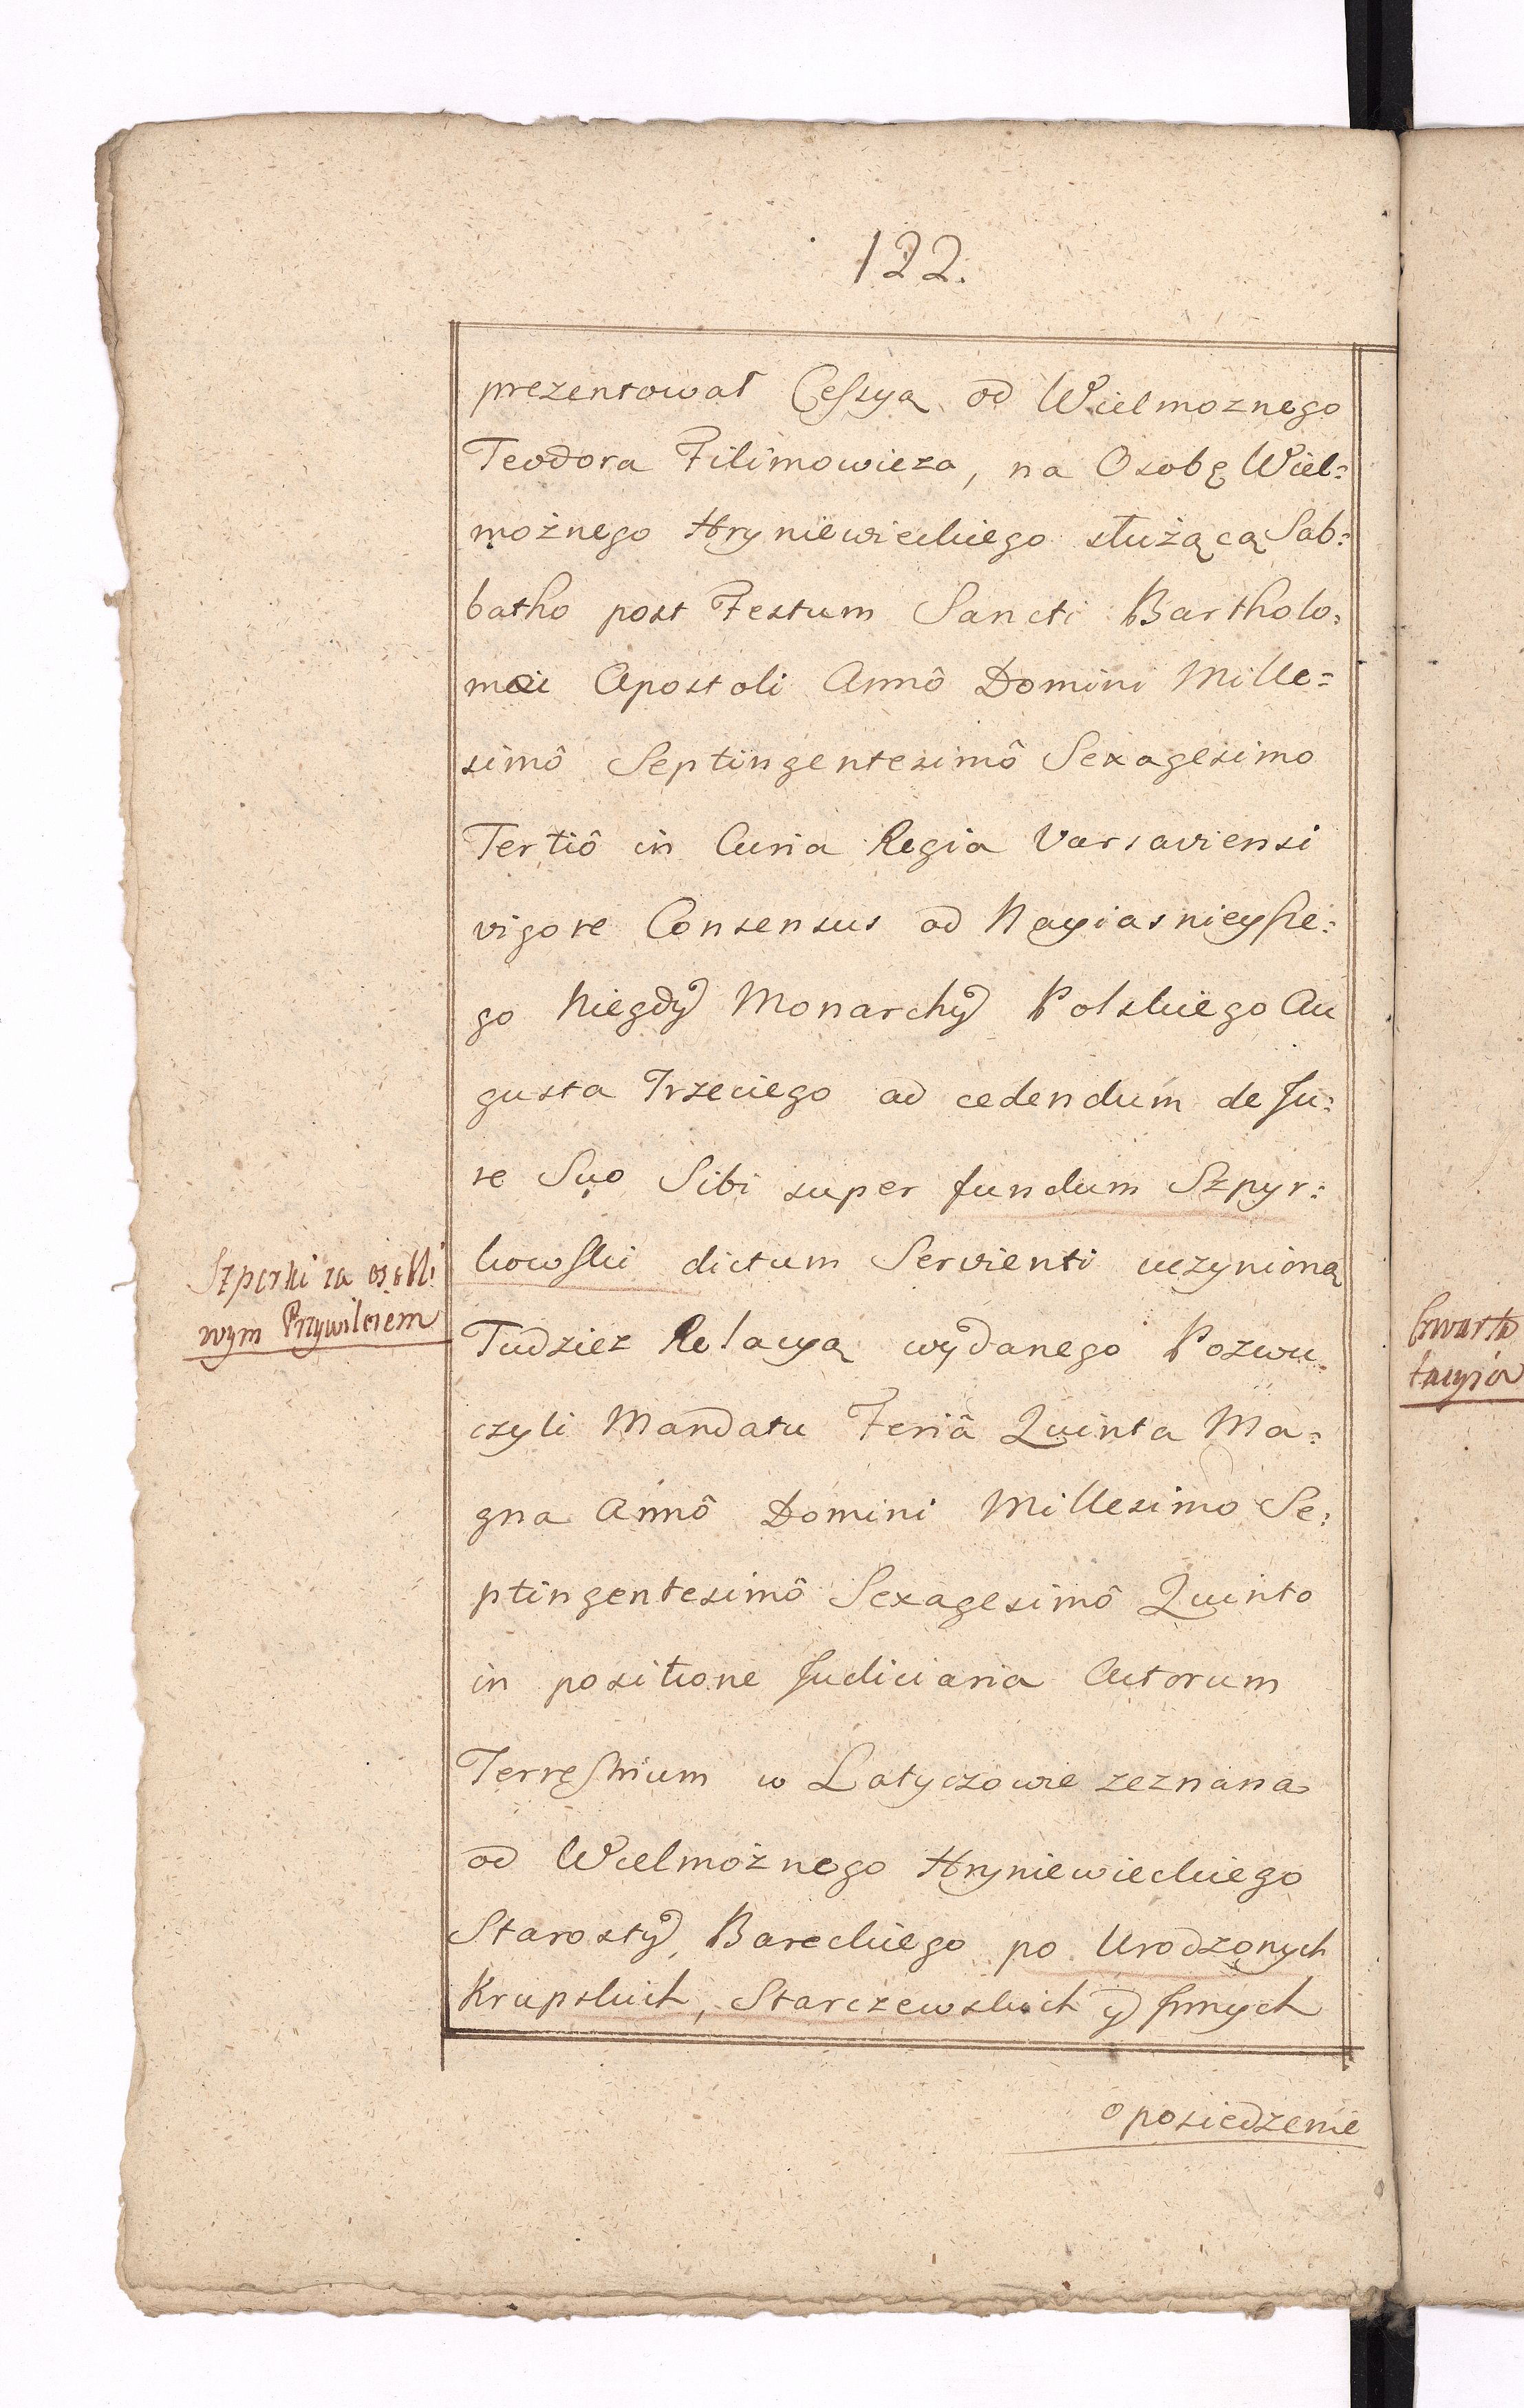 122.
prezentował Cessyą od Wielmoznego
Teodora Filimowicza, na Osobę Wiel=
możnego Hryniewieckiego służącą Sab=
batho post Festum Sancti Bartholo=
mæi Apostoli Annô Domini Mille=
simô Septingentesimô Sexagesimo
Tertiô in Curia Regia Varsaviensi
vigore Consensus od Nayiasnieysze=
go Niegdy Monarchy Polskiego Au
gusta Trzeciego ad cedendum de Ju=
re Suo Sibi super fundum Szpyr=
kowski dictum Servienti uczynioną
Szperki za osobli
wym Przywileiem
Tudziez Relacyą wydanego Pozwu
czyli Mandatu Feriâ Quinta Ma=
gna Annô Domini Millesimo Se=
ptingentesimô Sexagesimô Quinto
in positione Judiciaria Actorum
Terrestrium w Latyczowie zeznana
od Wielmożnego Hryniewieckiego
Starosty Bareckiego po Urodzonych
Krupskich, Starczewskich y Innych
o posiedzenie
Czwarta